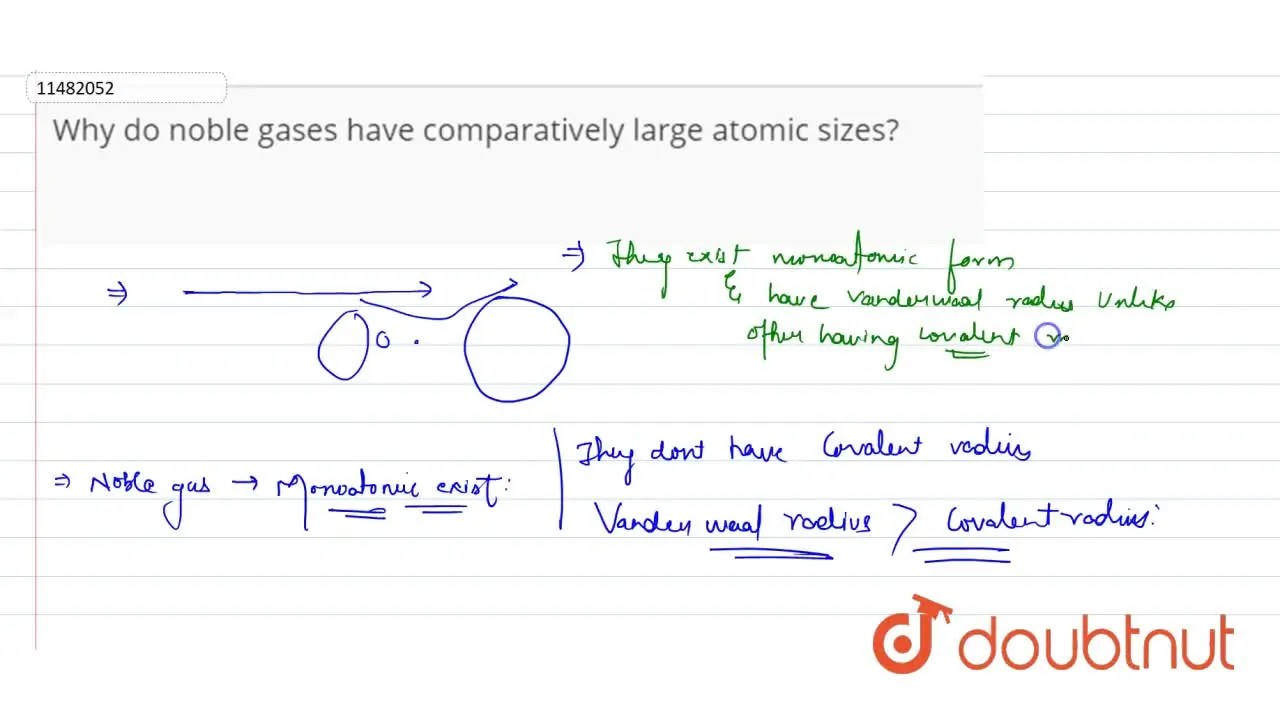 11482052
Why do noble gases have comparatively large atomic sizes?
⇒ They exist monoatomic form
& have vanderwaal radius unlike
other having covalent
⇒
⇒ Noble gas → Monoatomic exist:
They dont have Covalent radius
Vander waal radius > Covalent radius:
doubtnut